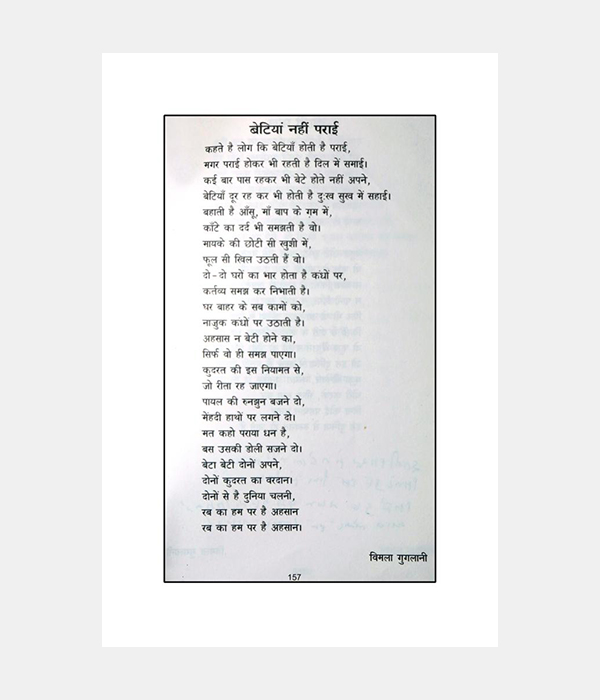 बेटियां नहीं पराई
कहते है लोग कि बेटियाँ होती है पराई,
मगर पराई होकर भी रहती है दिल में समाई।
कई बार पास रहकर भी बेटे होते नहीं अपने,
बेटियाँ दूर रह कर भी होती है दुःख सुख में सहाई।
बहाती है आँसू, माँ बाप के ग़म में,
काँटे का दर्द भी समझती है वो।
मायके की छोटी सी खुशी में,
फूल सी खिल उठती हैं वो।
दो-दो घरों का भार होता है कंधों पर,
कर्तव्य समझ कर निभाती है।
घर बाहर के सब कामों को,
नाज़ुक कंधों पर उठाती है।
अहसास न बेटी होने का,
सिर्फ वो ही समझ पाएगा।
कुदरत की इस नियामत से,
जो रीता रह जाएगा।
पायल की रुनझुन बजने दो,
मेंहदी हाथों पर लगने दो।
मत कहो पराया धन है,
बस उसकी डोली सजने दो।
बेटा बेटी दोनों अपने,
दोनों कुदरत का वरदान।
दोनों से है दुनिया चलनी,
रब का हम पर है अहसान
रब का हम पर है अहसान।
विमला गुगलानी
157